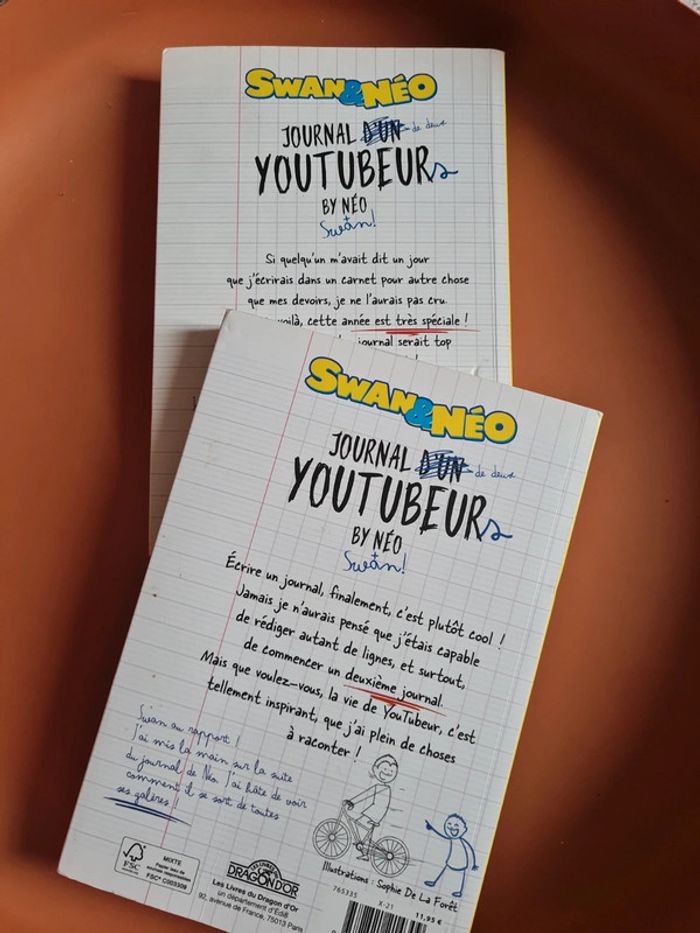 SWAN & NÉO
JOURNAL D'UN de deux
YOUTUBEURs
BY NÉO
+ Swan!
Si quelqu'un m'avait dit un jour
que j'écrirais dans un carnet pour autre chose
que mes devoirs, je ne l'aurais pas cru.
voilà, cette année est très spéciale !
journal serait top
SWAN & NÉO
JOURNAL D'UN de deux
YOUTUBEURs
BY NÉO
+ Swan!
Écrire un journal, finalement, c'est plutôt cool !
Jamais je n'aurais pensé que j'étais capable
de rédiger autant de lignes, et surtout,
de commencer un deuxième journal.
Mais que voulez-vous, la vie de YouTubeur, c'est
tellement inspirant, que j'ai plein de choses
à raconter !
Swan au rapport !
J'ai mis la main sur la suite
du journal de Néo. J'ai hâte de voir
comment il se sort de toutes
ses galères !
FSC
MIXTE
Papier issu de
sources responsables
FSC® C003309
LES LIVRES DU
DRAGON D'OR
Les Livres du Dragon d'Or
un département d'Edi8
92, avenue de France, 75013 Paris
Illustrations : Sophie De La Forêt
765335 X-21 11,95 €